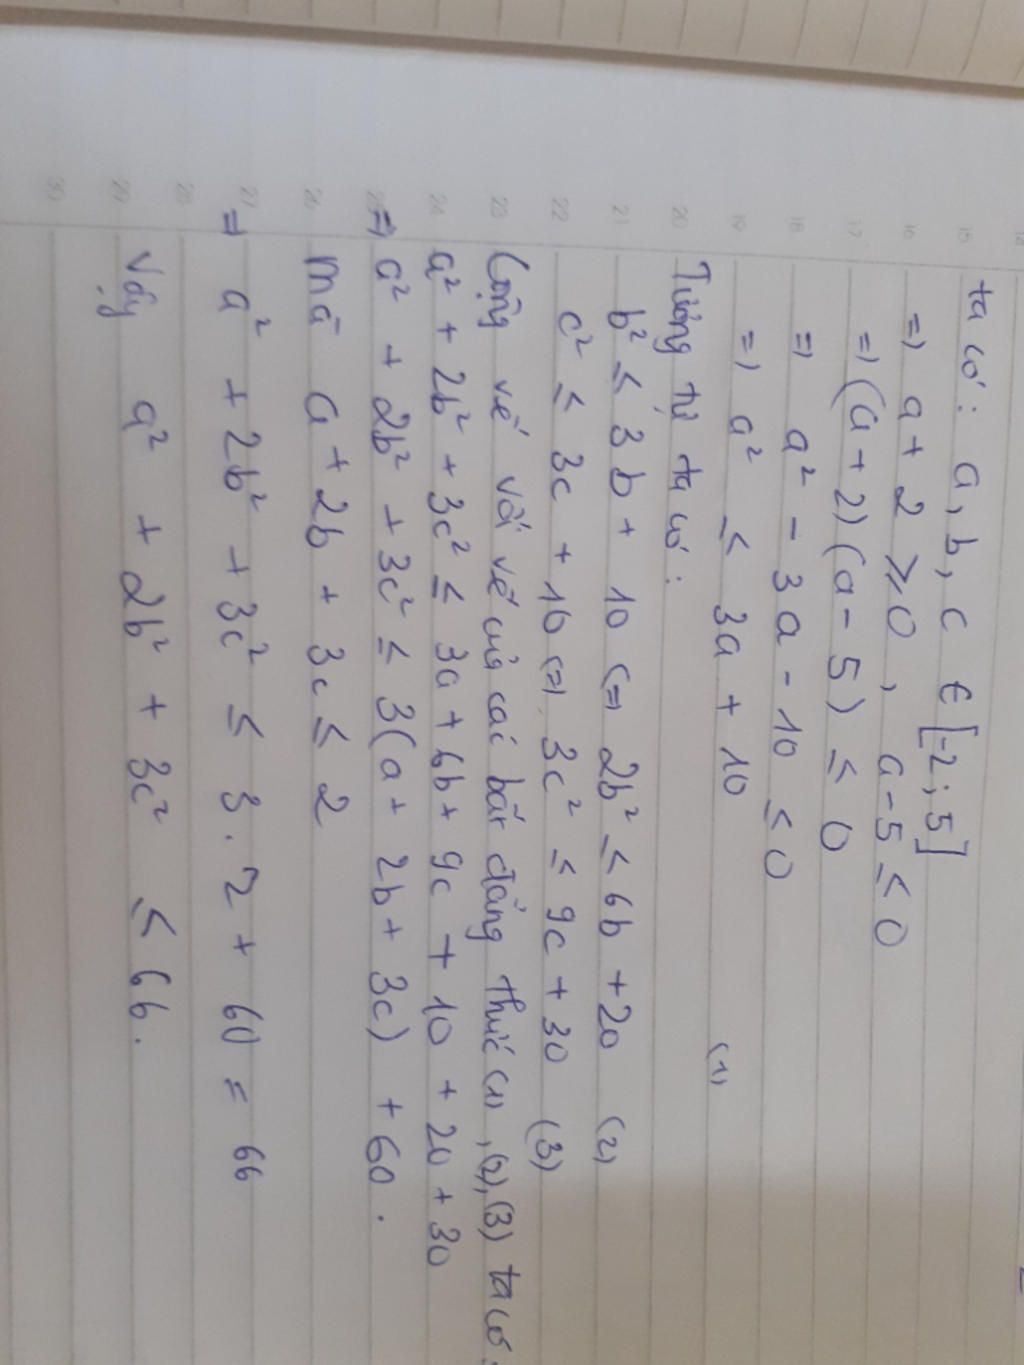 ta có: a, b, c ∈ [-2; 5]
=) a + 2 ≥ 0, a - 5 ≤ 0
=) (a + 2)(a - 5) ≤ 0
=) a² - 3a - 10 ≤ 0
=) a² ≤ 3a + 10 (1)
Tương tự ta có:
b² ≤ 3b + 10 (=) 2b² ≤ 6b + 20 (2)
c² ≤ 3c + 10 (=) 3c² ≤ 9c + 30 (3)
Cộng vế với vế của các bất đẳng thức (1), (2), (3) ta có:
a² + 2b² + 3c² ≤ 3a + 6b + 9c + 10 + 20 + 30
=) a² + 2b² + 3c² ≤ 3(a + 2b + 3c) + 60.
mà a + 2b + 3c ≤ 2
=) a² + 2b² + 3c² ≤ 3.2 + 60 = 66
Vậy a² + 2b² + 3c² ≤ 66.
14
15
16
17
18
19
20
21
22
23
24
25
26
27
28
29
30